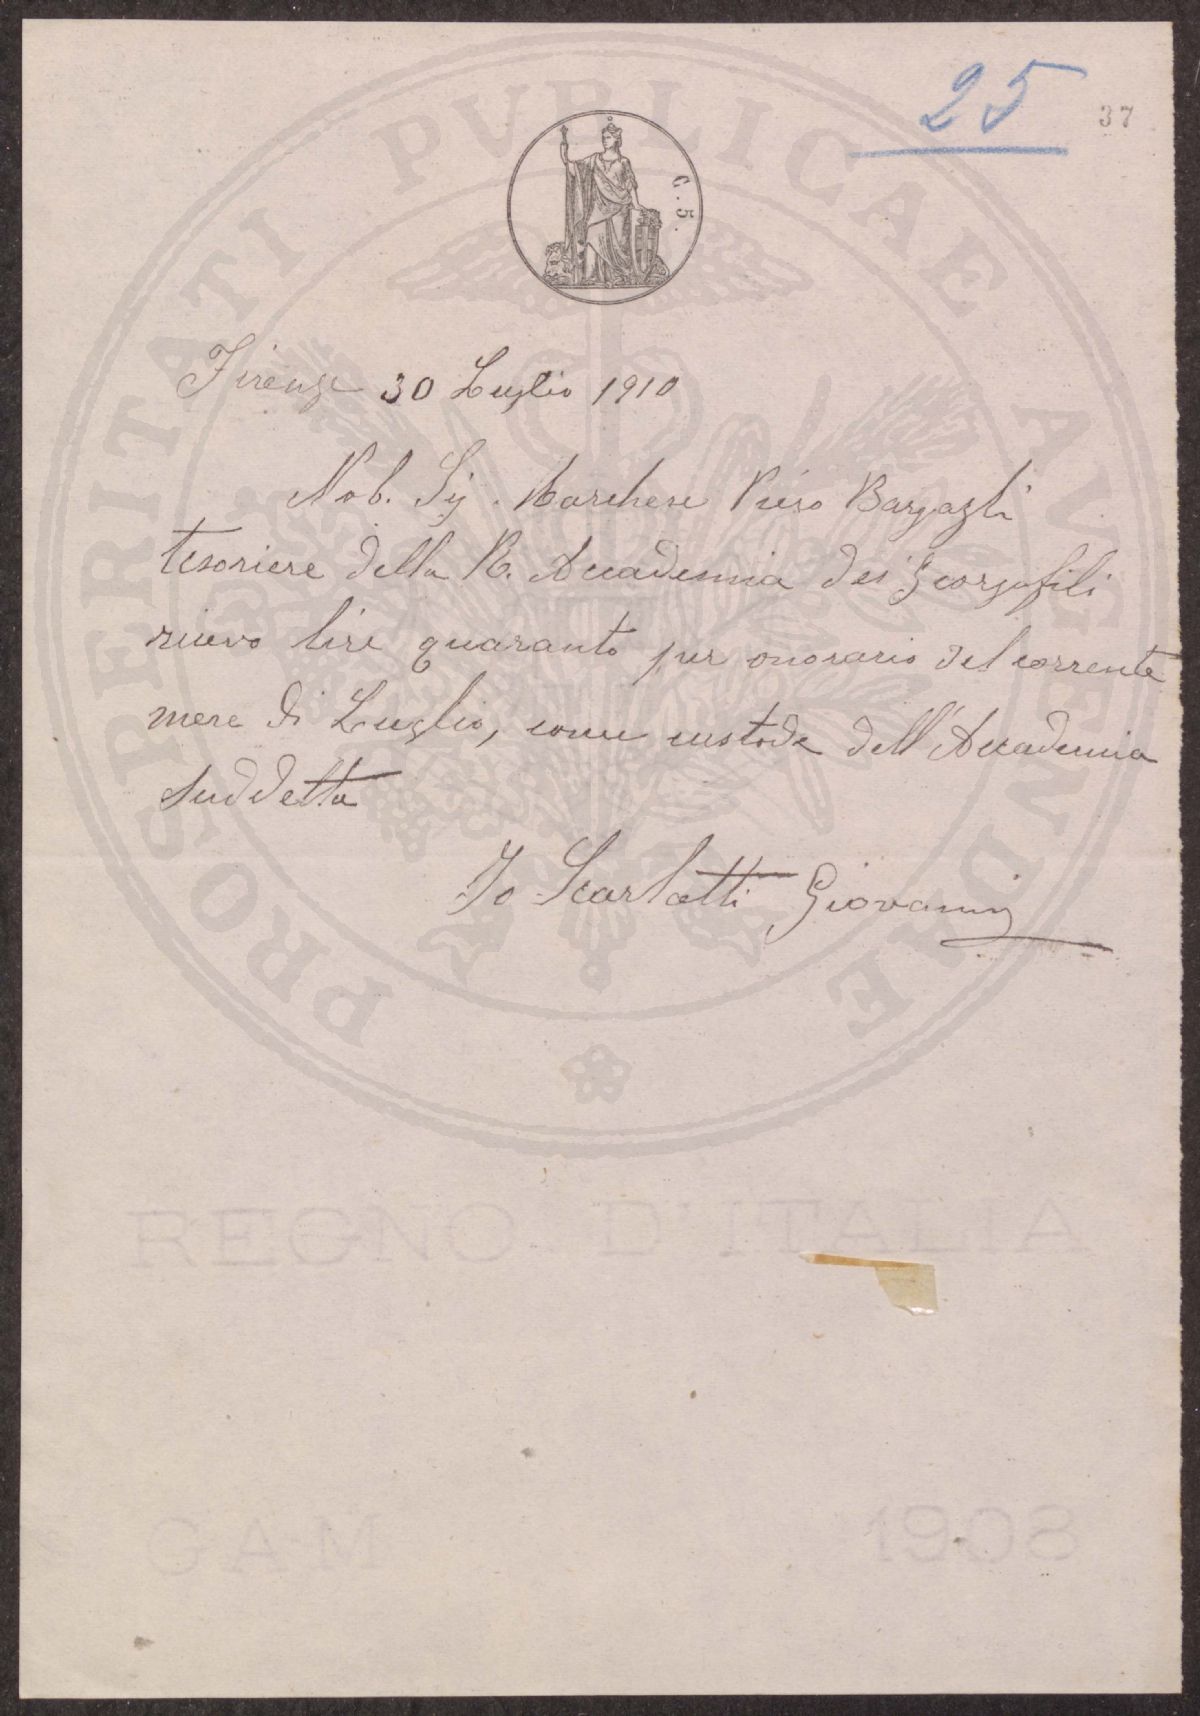 25
37
C. 5.
Firenze 30 Luglio 1910
Nob. Sig. Marchese Piero Bargagli
tesoriere della R. Accademia dei Georgofili
ricevo lire quaranta per onorario del corrente
mese di Luglio, come custode dell'Accademia
suddetta
Io Scarlatti Giovanni
PROSPERITATI PVBLICAE AVGENDAE
REGNO D'ITALIA
GAM 1908